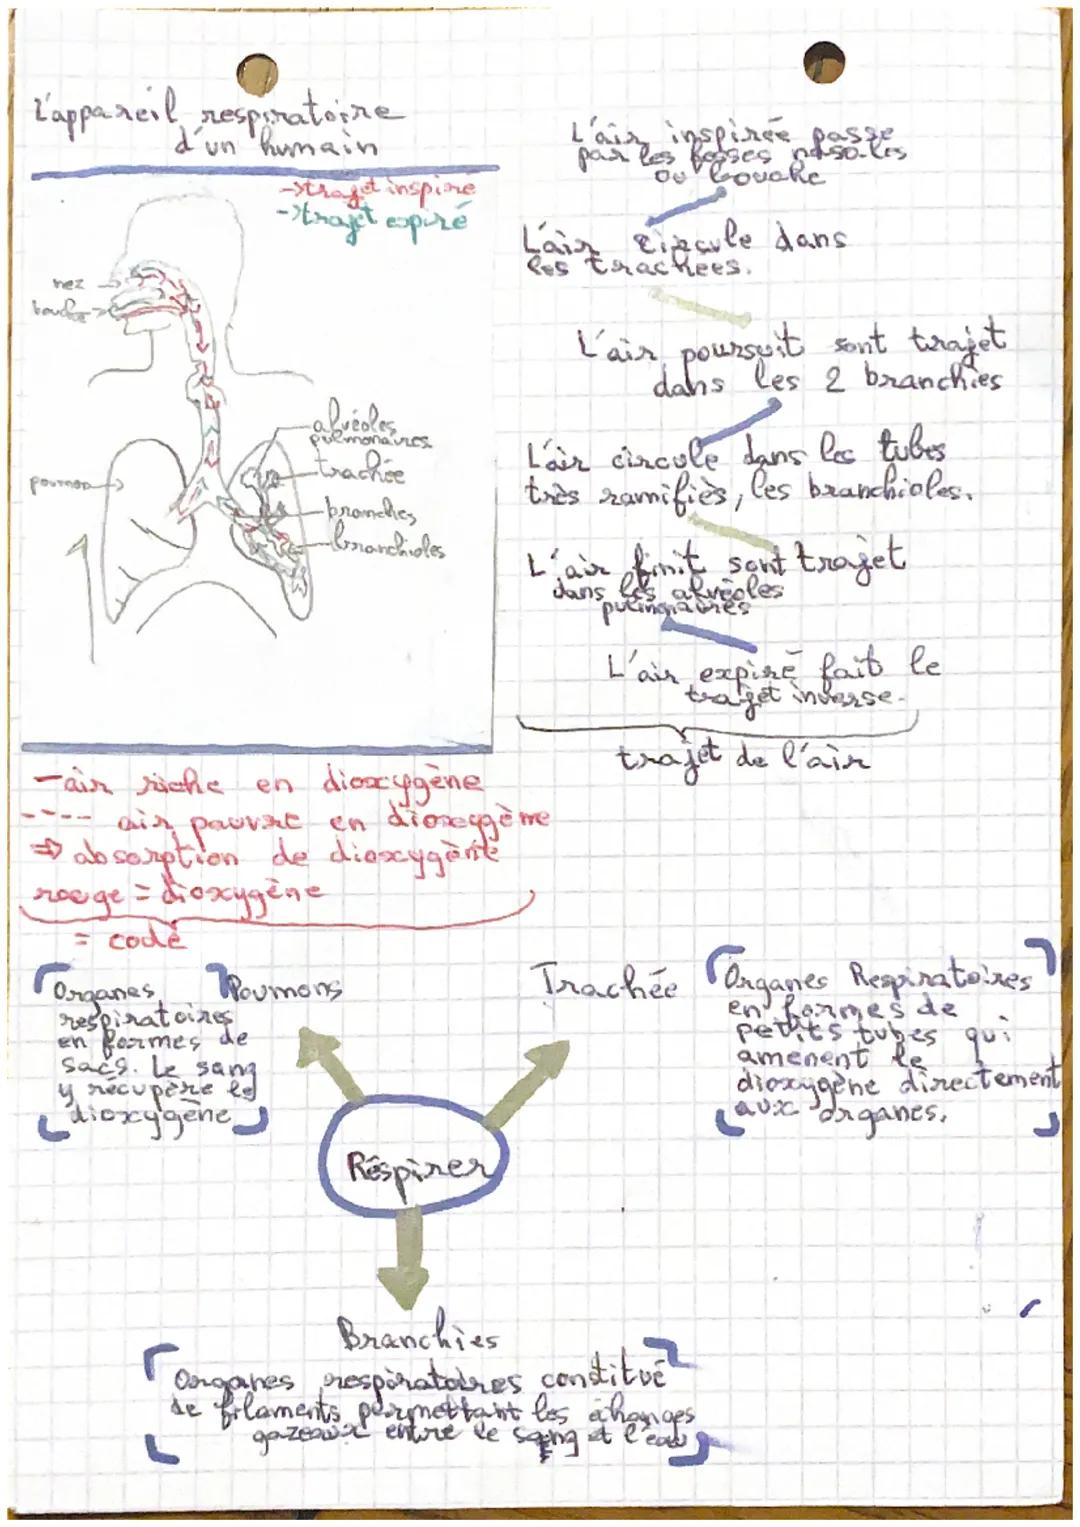 L'appareil respiratoire
d'un humain
→trajet inspiré
→trajet expiré
nez
bouche
alvéoles
pulmonaires
trachée
poumon
bronches
branchioles
L'air inspirée passe
par les fosses nasales
ou bouche
L'air circule dans
les trachées.
L'air poursuit sont trajet
dans les 2 branchies
L'air circule dans les tubes
très ramifiès, les branchioles.
L'air finit sont trajet
dans les alvéoles
pulmonaires
L'air expiré fait le
trajet inverse.
trajet de l'air
- air riche en dioxygène
---- air pauvre en dioxygène
⇒ absorption de dioxygène
rouge = dioxygène
= code
Poumons
Organes
respiratoires
en formes de
sacs. Le sang
y récupère le
dioxygène
Trachée
Organes Respiratoires
en formes de
petits tubes qui
amenent le
dioxygène directement
aux organes.
Réspirer
Branchies
Organes respiratoires constitué
de filaments permettant les échanges
gazeaux entre le sang et l'eau